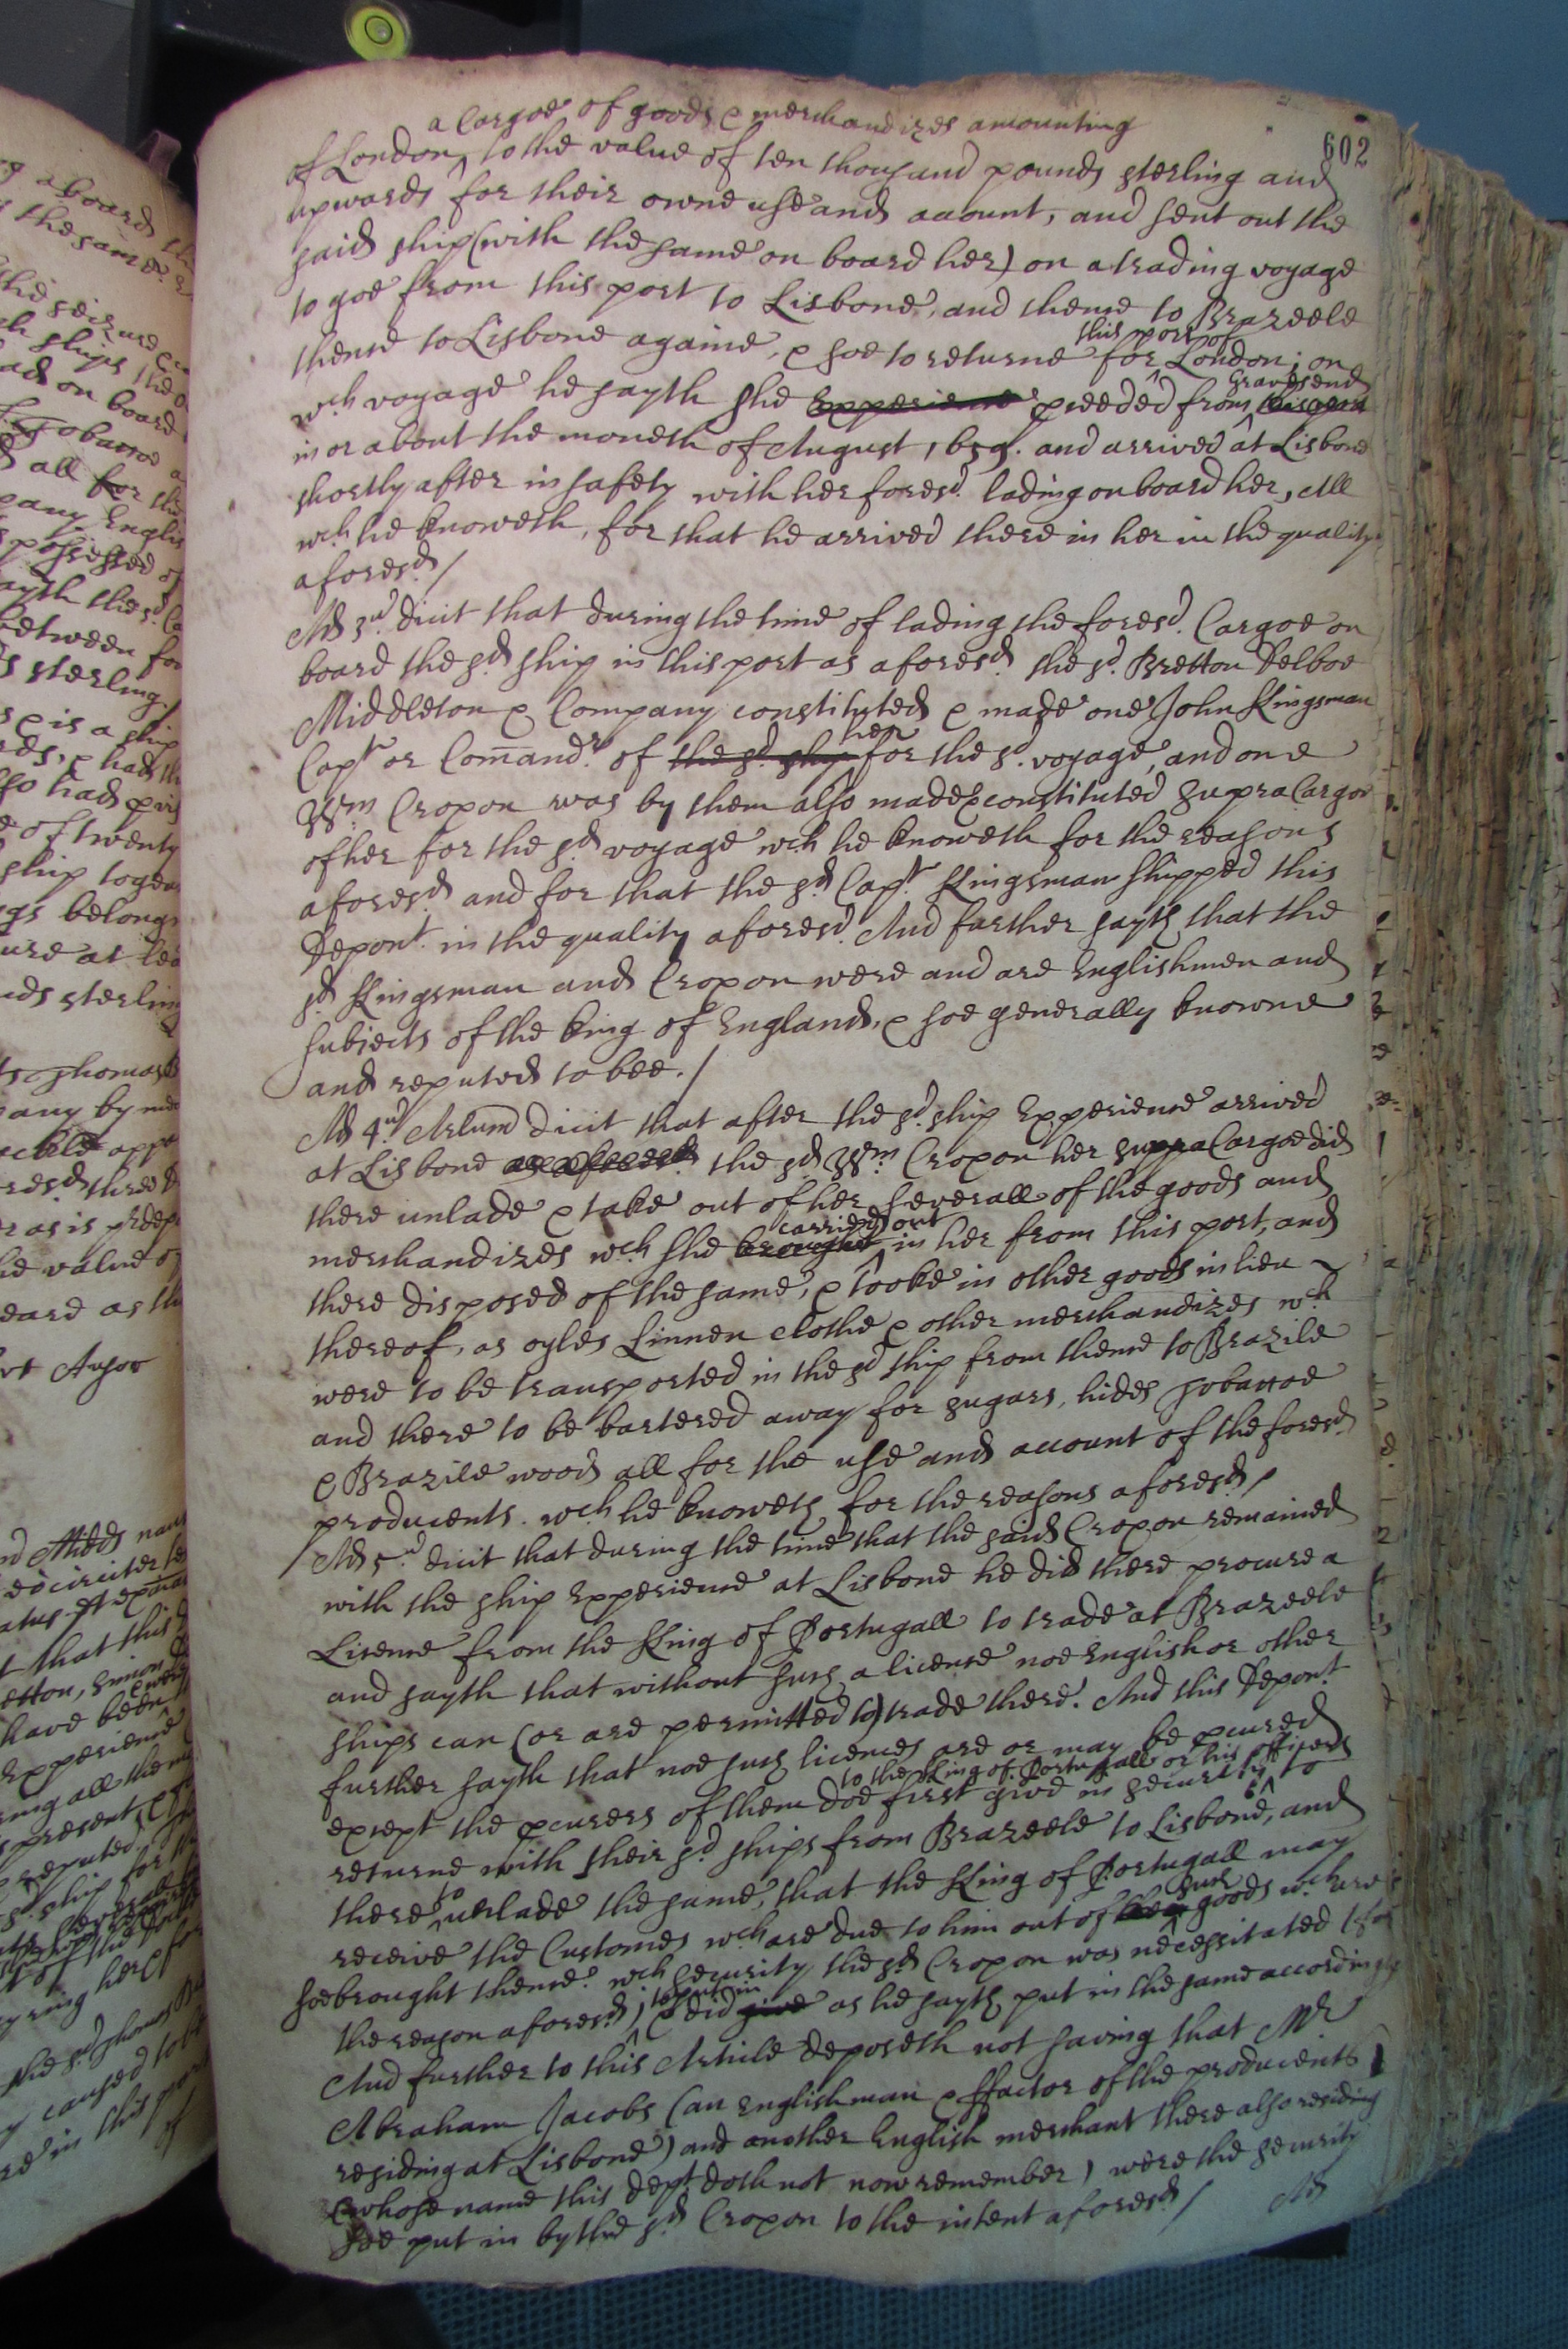 602
a Cargoe of goods & merchandizes amounting
of London, to the value of ten thousand pounds sterling and
upwards for their owne use and account, and sent out the
said ship (with the same on board her) on a trading voyage
to goe from this port to Lisbone, and thence to Brazeele
thence to Lisbone againe, & soe to returne for London; on
this port of
wch voyage he sayth she Experience pceeded from
Gravesend
in or about the moneth of August 1659. and arrived at Lisbone
shortly after in safety with her foresd. lading on board her, All
wch he knoweth, for that he arrived there in her in the quality
aforesd /
Ad 3ud. dicit that during the time of lading the foresd. Cargoe on
board the sd. ship in this port as aforesd. the sd. Bretton Delboe
Middleton & Company constituted & made one John Kingsman
Capt. or Comandr. of the sd. ship for the sd. voyage, and one
her
Wm Cropon was by them also made & constituted supra Cargoe
of her for the sd. voyage wch he knoweth for the reasons
aforesd and for that the sd. Capt. Kingsman shipped this
Depont. in the quality aforesd. And farther sayth that the
sd. Kingsman and Cropon were and are Englishmen and
subiects of the king of England, & soe generally knowne
and reputed to bee. /
Ad 4ud. Arlum dicit that after the sd. ship Experience arrived
at Lisbone as aforesd. the sd Wm. Cropon her supra Cargoe did
there unlade & take out of her severall of the goods and
merchandizes wch she brought in her from this port, and
carried out
there disposed of the same, & tooke in other goods in lieu
thereof, as oyles Linnen clothe & other merchandizes wch
were to be transported in the sd ship from thence to Brazile
and there to be bartered away for sugars, hides Tobaccoe
& Brazile wood all for the use and account of the foresd.
producents. wch he knoweth for the reasons aforesd /
Ad 5ud. dicit that during the time that the said Cropon remained
with the ship Experience at Lisbone he did there procure a
Licence from the King of Portugall to trade at Brazeele
and sayth that without such a license noe English or other
ships can (or are permitted to) trade there. And this Depont.
further sayth that noe such licences are or may be pcured
except the pcurers of them doe first give in security to
to the King of Portugall or his officers
returne with their sd. ships from Brazeele to Lisbone, and
there to unlade the same, that the King of Portugall may
receive the Customes wch are due to him out of goods wch are
such
soe brought thence. wch security the sd. Cropon was necessitated (for
the reason aforesd) & did give as he sayth put in the same accordingly
to put in
And further to this Article deposeth not saving that Mr
Abraham Jacobs (an Englishman & ffactor of the producents
residing at Lisbone) and another English merchant there also residing
(whose name this dept. doth not now remember) were the security
soe put in by the sd. Cropon to the intent aforesd /
Ad